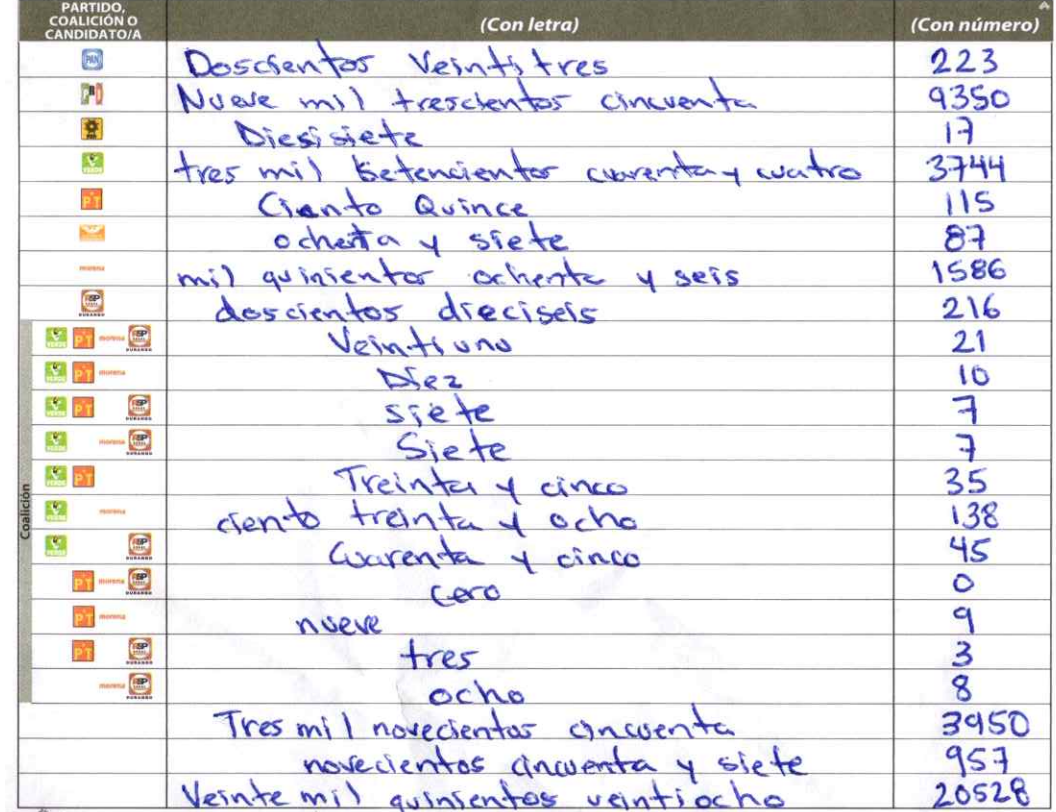 PARTIDO, COALICIÓN O CANDIDATO/A (Con letra) (Con número)
PAN Doscientos Veintitres 223
PRI Nueve mil trescientos cincuenta 9350
PRD Diesisiete 17
VERDE tres mil setencientos cuarenta y cuatro 3744
PT Ciento Quince 115
ochenta y siete 87
morena mil quinientos ochenta y seis 1586
RSP DURANGO doscientos dieciseis 216
Coalición
VERDE PT morena RSP DURANGO Veintiuno 21
VERDE PT morena Diez 10
VERDE PT RSP DURANGO siete 7
VERDE morena RSP DURANGO Siete 7
VERDE PT Treinta y cinco 35
VERDE morena ciento treinta y ocho 138
VERDE RSP DURANGO Cuarenta y cinco 45
PT morena RSP DURANGO cero 0
PT morena nueve 9
PT RSP DURANGO tres 3
morena RSP DURANGO ocho 8
Tres mil novecientos cincuenta 3950
novecientos cincuenta y siete 957
Veinte mil quinientos veintiocho 20528